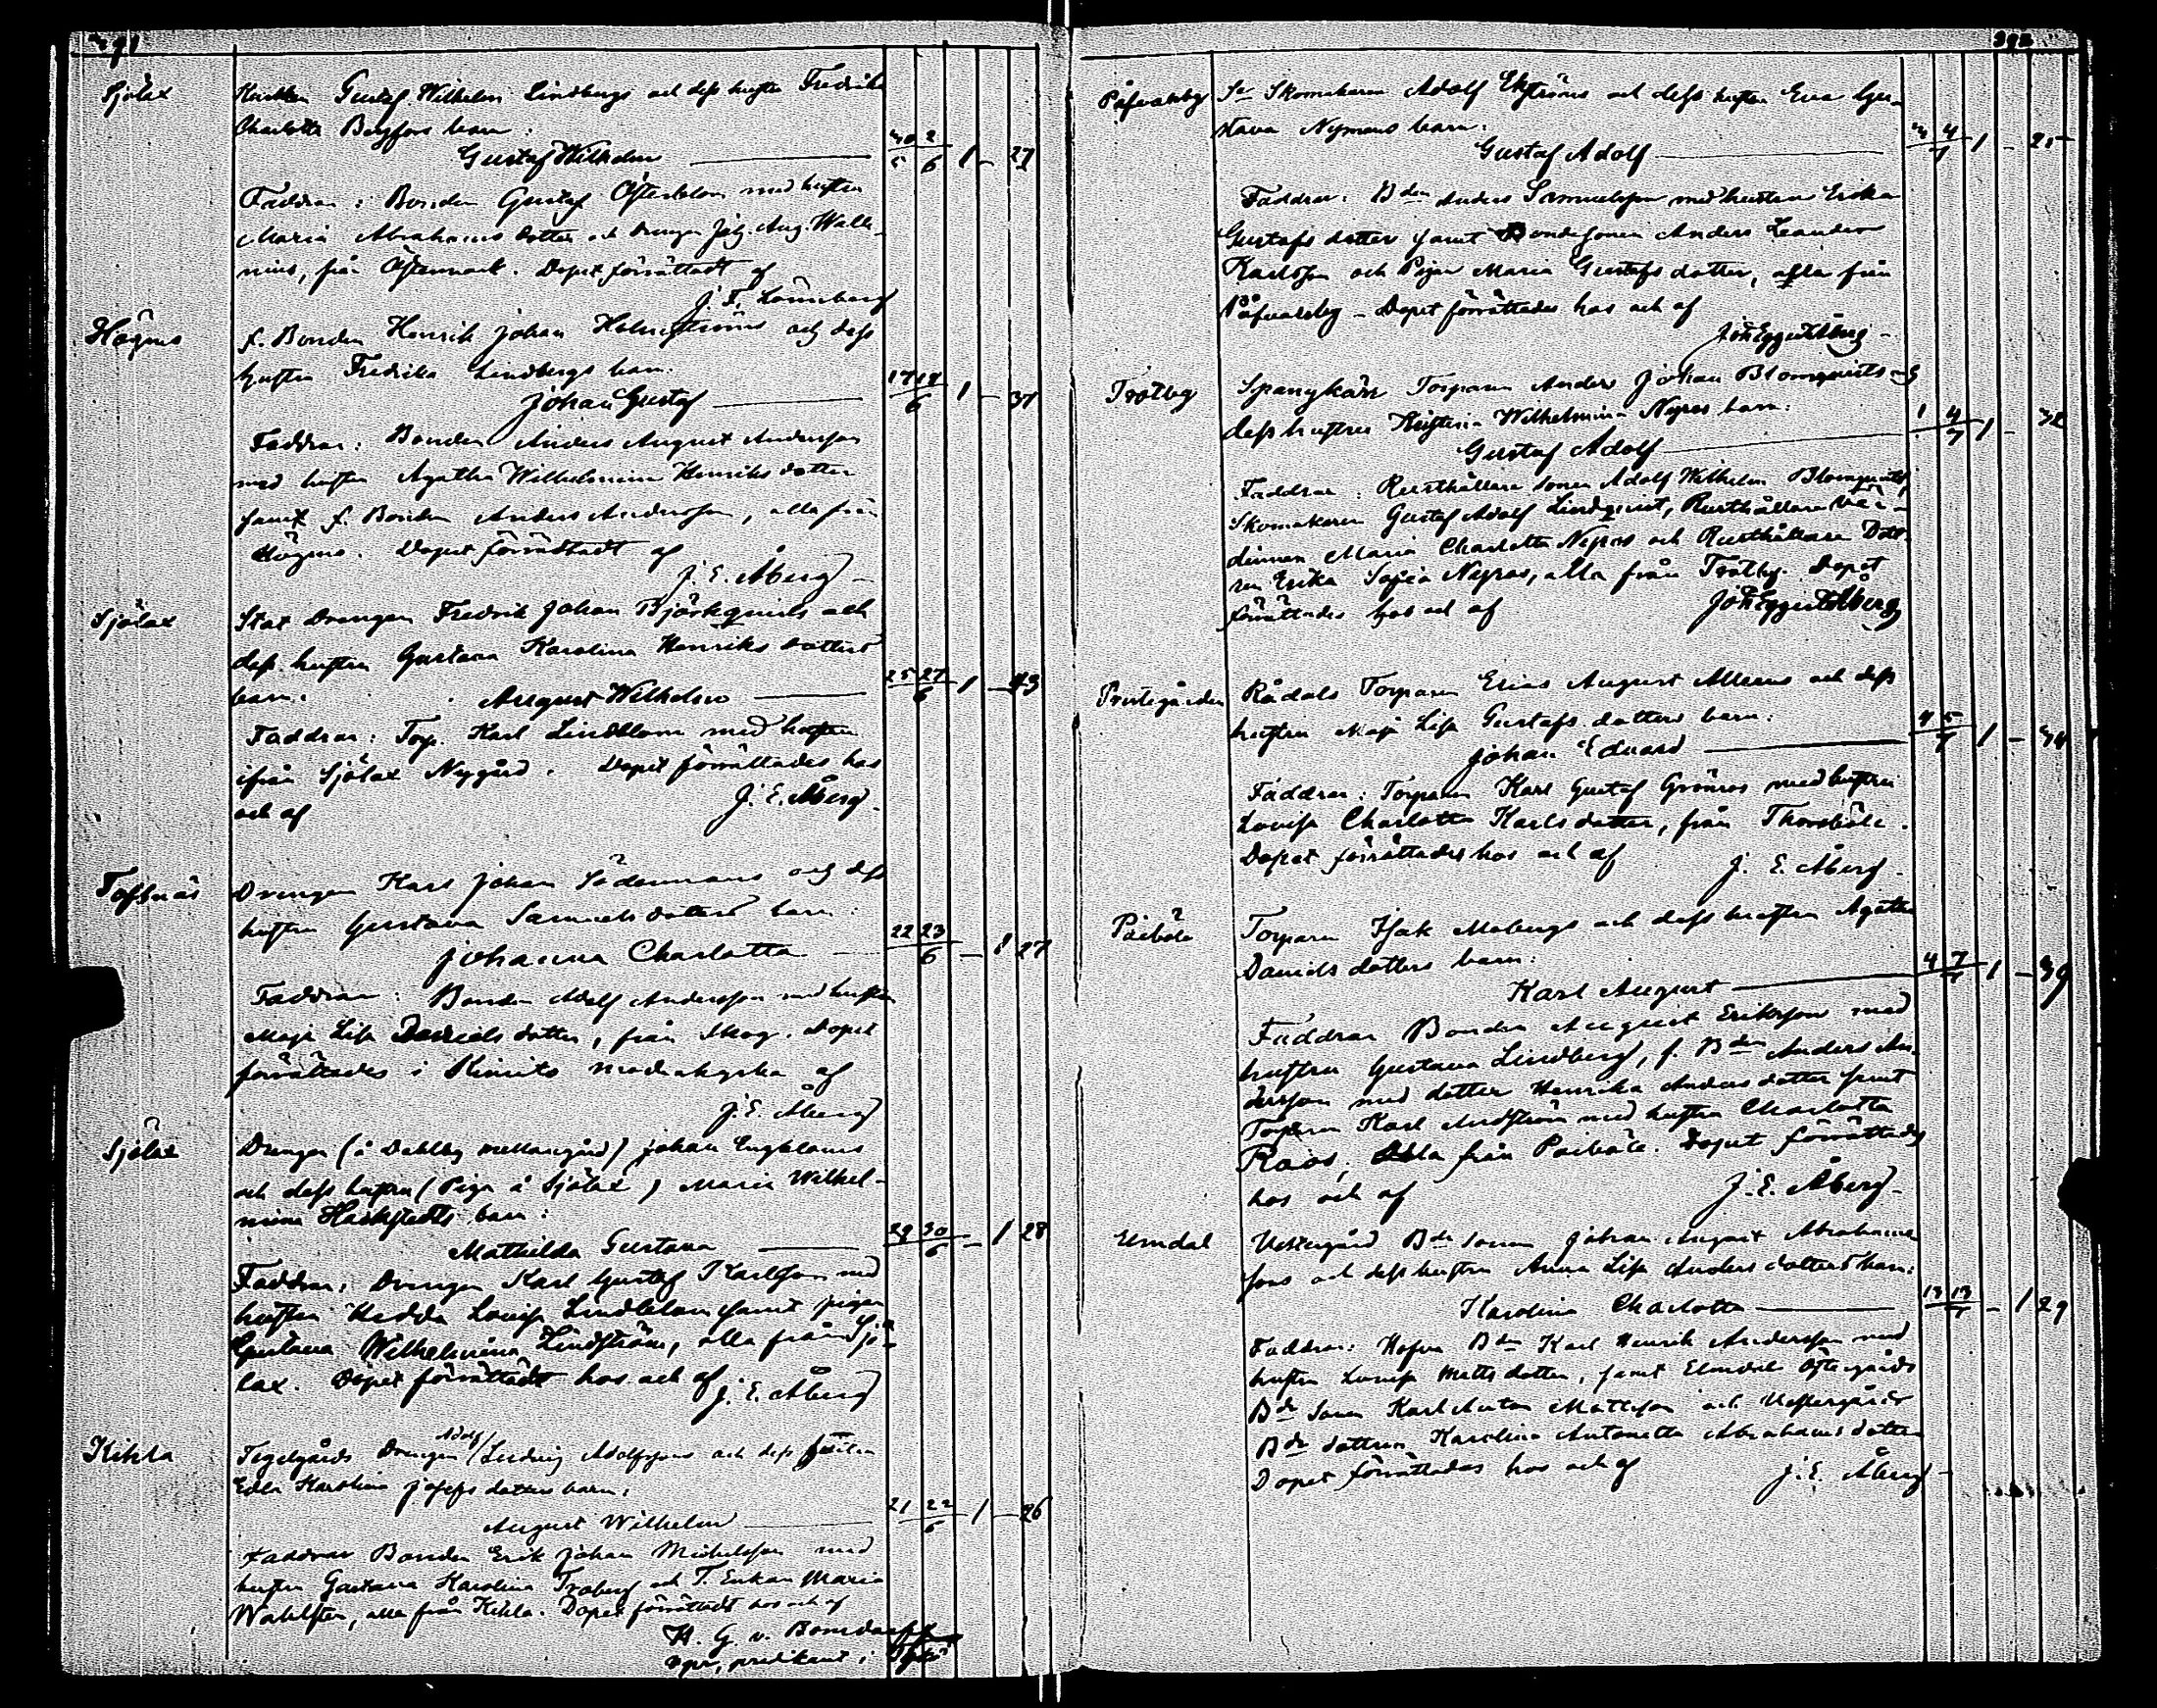 391
Sjölax
Kusken Gustaf Wilhelm Lindbergs och dess hustru Fredrika
Charlotta Bergfors barn:
Gustaf Wilhelm — 30/5 2/6 1 – 27
Faddrar: Bonden Gustaf Österblom med hustru
Maria Abrahams dotter och Drengen Joh. Aug. Walle-
nius, från Östermark. Dopet förrättadt af
J. F. Lönnberg
Högmo
f. Bonden Henrik Johan Holmströms och dess
hustru Fredrika Lindbergs barn.
Johan Gustaf — 17 18/6 1 – 37
Faddrar: Bonden Anders August Andersson
med hustru Agatha Wilhelmina Henriks dotter
samt f. Bonden Anders Andersson, alla från
Högmo. Dopet förrättadt af
J. E. Åberg
Sjölax
Stat Drengen Fredrik Johan Björkqvists och
dess hustru Gustava Karolina Henriks dotters
barn: August Wilhelm — 25 27/6 1 – 43
Faddrar: Torp. Karl Lindblom med hustru
ifrån Sjölax Nygård. Dopet förrättades hos
och af J. E. Åberg
Tofsnäs
Drengen Karl Johan Södermans och dess
hustru Gustava Samuels dotters barn:
Johanna Charlotta — 22 23/6 – 1 27
Faddrar: Bonden Adolf Andersson med hustru
Maja Lisa Daniels dotter, från Skog. Dopet
förrättades i Kimito moderkyrka af
J. E. Åberg
Sjölax
Drengen (å Dahlby mellangård) Johan Engbloms
och dess hustru (Piga å Sjölax) Maria Wilhel-
mina Hackstedts barn:
Mathilda Gustava — 29 30/6 – 1 28
Faddrar: Drengen Karl Gustaf Karlsson med
hustru Hedda Lovisa Lindblom samt pigan
Gustava Wilhelmina Lindström, alla från Sjö-
lax. Dopet förrättadt hos och af J. E. Åberg
Kihla
Tegelgårds Drengen Adolf Ludvig Adolfssons och dess hustru
Edla Karolina Josefs dotters barn.
August Wilhelm — 21 22/6 1 – 26
Faddrar Bonden Erik Johan Mickelsson med
hustru Gustava Karolina Troberg och T. Enkan Maria
Wahlsten, alla från Kihla. Dopet förrättadt hos och af
H. G. v. Bonsdorff
predikant i
392
Påfvalsby
Skomakaren Adolf Ekströms och dess hustru Eva Gus-
tava Nymans barn:
Gustaf Adolf — 3 4/7 1 – 25
Faddrar: Bden Anders Samuelsson med hustru Erika
Gustafs dotter samt Bondesonen Anders Leander
Karlsson och Pigan Maria Gustafs dotter, alla från
Påfvalsby – Dopet förrättades hos och af
Joh Eggert Åberg
Trotby
Spangkärr Torparen Anders Johan Blomqvists och
dess hustrus Wilhelmina Nyros barn:
Gustaf Adolf — 1 4/7 1 – 32
Faddrar: Rusthållare sonen Adolf Wilhelm Blomqvist,
Skomakaren Gustaf Adolf Lindqvist, Rusthållare Vär-
dinnan Maria Charlotta Nyros och Rusthållare Dott-
ren Erika Sofia Nyros, alla från Trotby. Dopet
förrättades hos och af Joh Eggert Åberg
Prestegården
Rådals Torparen Elias August Allens och dess
hustru Maja Lisa Gustafs dotters barn:
Johan Edvard — 4 5/7 1 – 34
Faddrar: Torparen Karl Gustaf Grönros med hustru
Lovisa Charlotta Karls dotter, från Thorsböle.
Dopet förrättades hos och af J. E. Åberg
Päiböle
Torparen Isak Mobergs och dess hustru Agatha
Daniels dotters barn:
Karl August — 4 7/7 1 – 39
Faddrar Bonden August Eriksson med
hustru Gustava Lindberg, f. Bden Anders An-
dersson med dotter Henrika Anders dotter samt
Torparen Karl med hustru Charlotta
Roos, alla från Päiböle. Dopet förrättades
hos och af J. E. Åberg
Elmdal
Vestergård Bde sonen Johan August Abrahams-
sons och dess hustru Anna Lisa Anders dotters barn:
Karolina Charlotta — 13 13/7 – 1 29
Faddrar: Bden Karl Henrik Andersson med
hustru Lovisa Matts dotter, samt Elmdal Östergårds
Bde sonen Karl Anton Mattsson och Vestergårds
Bde dottren Karolina Antonetta Abrahams dotter
Dopet förrättades hos och af J. E. Åberg